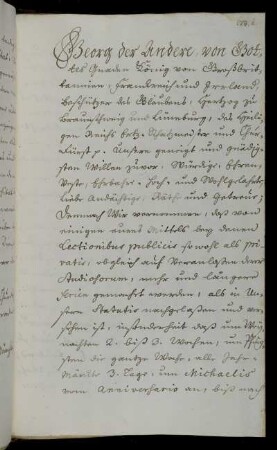 Georg der Andere von Got-
tes Gnaden König von Großbrit-
tannien, Franckreich und Irreland,
Beschützer des Glaubens, Hertzog zu
Braunschweig und Lüneburg, des Heili-
gen Reichs Ertz-Schatzmeister und Chur-
Fürst p. Unsern geneigt und gnädig-
sten Willen zuvor, Würdig- Ehren-
Veste, Ehrbahre, Hoch- und Wohlgelahrte,
liebe Andächtige, Räthe und Getreue;
Demnach Wir vernommen, daß von
einigen eures Mittels bey denen
Lectionibus publicis so wohl als pri-
vatis, obgleich auf Veranlaßen derer
Studiosorum, mehr und längere
Ferien gemacht werden, als in Un-
sern Statutis nachgelaßen und ver-
sehen ist, insonderheit daß um Wey-
nachten 2. biß 3. Wochen, um Pfing-
sten die gantze Woche, alle Jahr-
Märkte 3. Tage, um Michaelis
vom Anniversario an, biß nach